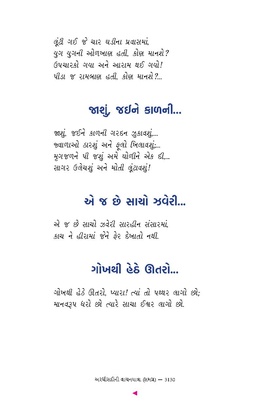 લૂંટી ગઈ જે ચાર ઘડીના પ્રવાસમાં,
યુગ યુગની ઓળખાણ હતી, કોણ માનશે?
ઉપચારકો ગયા અને આરામ થઈ ગયો!
પીડા જ રામબાણ હતી, કોણ માનશે?...
જાશું, જઈને કાળની...
જાશું, જઈને કાળની ગરદન ઝુકાવશું...
જ્વાળાઓ ઠારશું અને ફૂલો ખિલાવશું;...
મૃગજળને પી જશું અમે ઘોળીને એક દી,...
સાગર ઉલેચશું અને મોતી લૂંટાવશું!
એ જ છે સાચો ઝવેરી...
એ જ છે સાચો ઝવેરી સારહીન સંસારમાં,
કાચ ને હીરામાં જેને ફેર દેખાતો નથી.
ગોખથી હેઠે ઊતરો...
ગોખથી હેઠે ઊતરો, પ્યારા! ત્યાં તો પથ્થર લાગો છો;
માનવરૂપ ધરો છો ત્યારે સાચા ઈશ્વર લાગો છો.
અરધી સદીની વાચનયાત્રા (સમગ્ર) — 3132